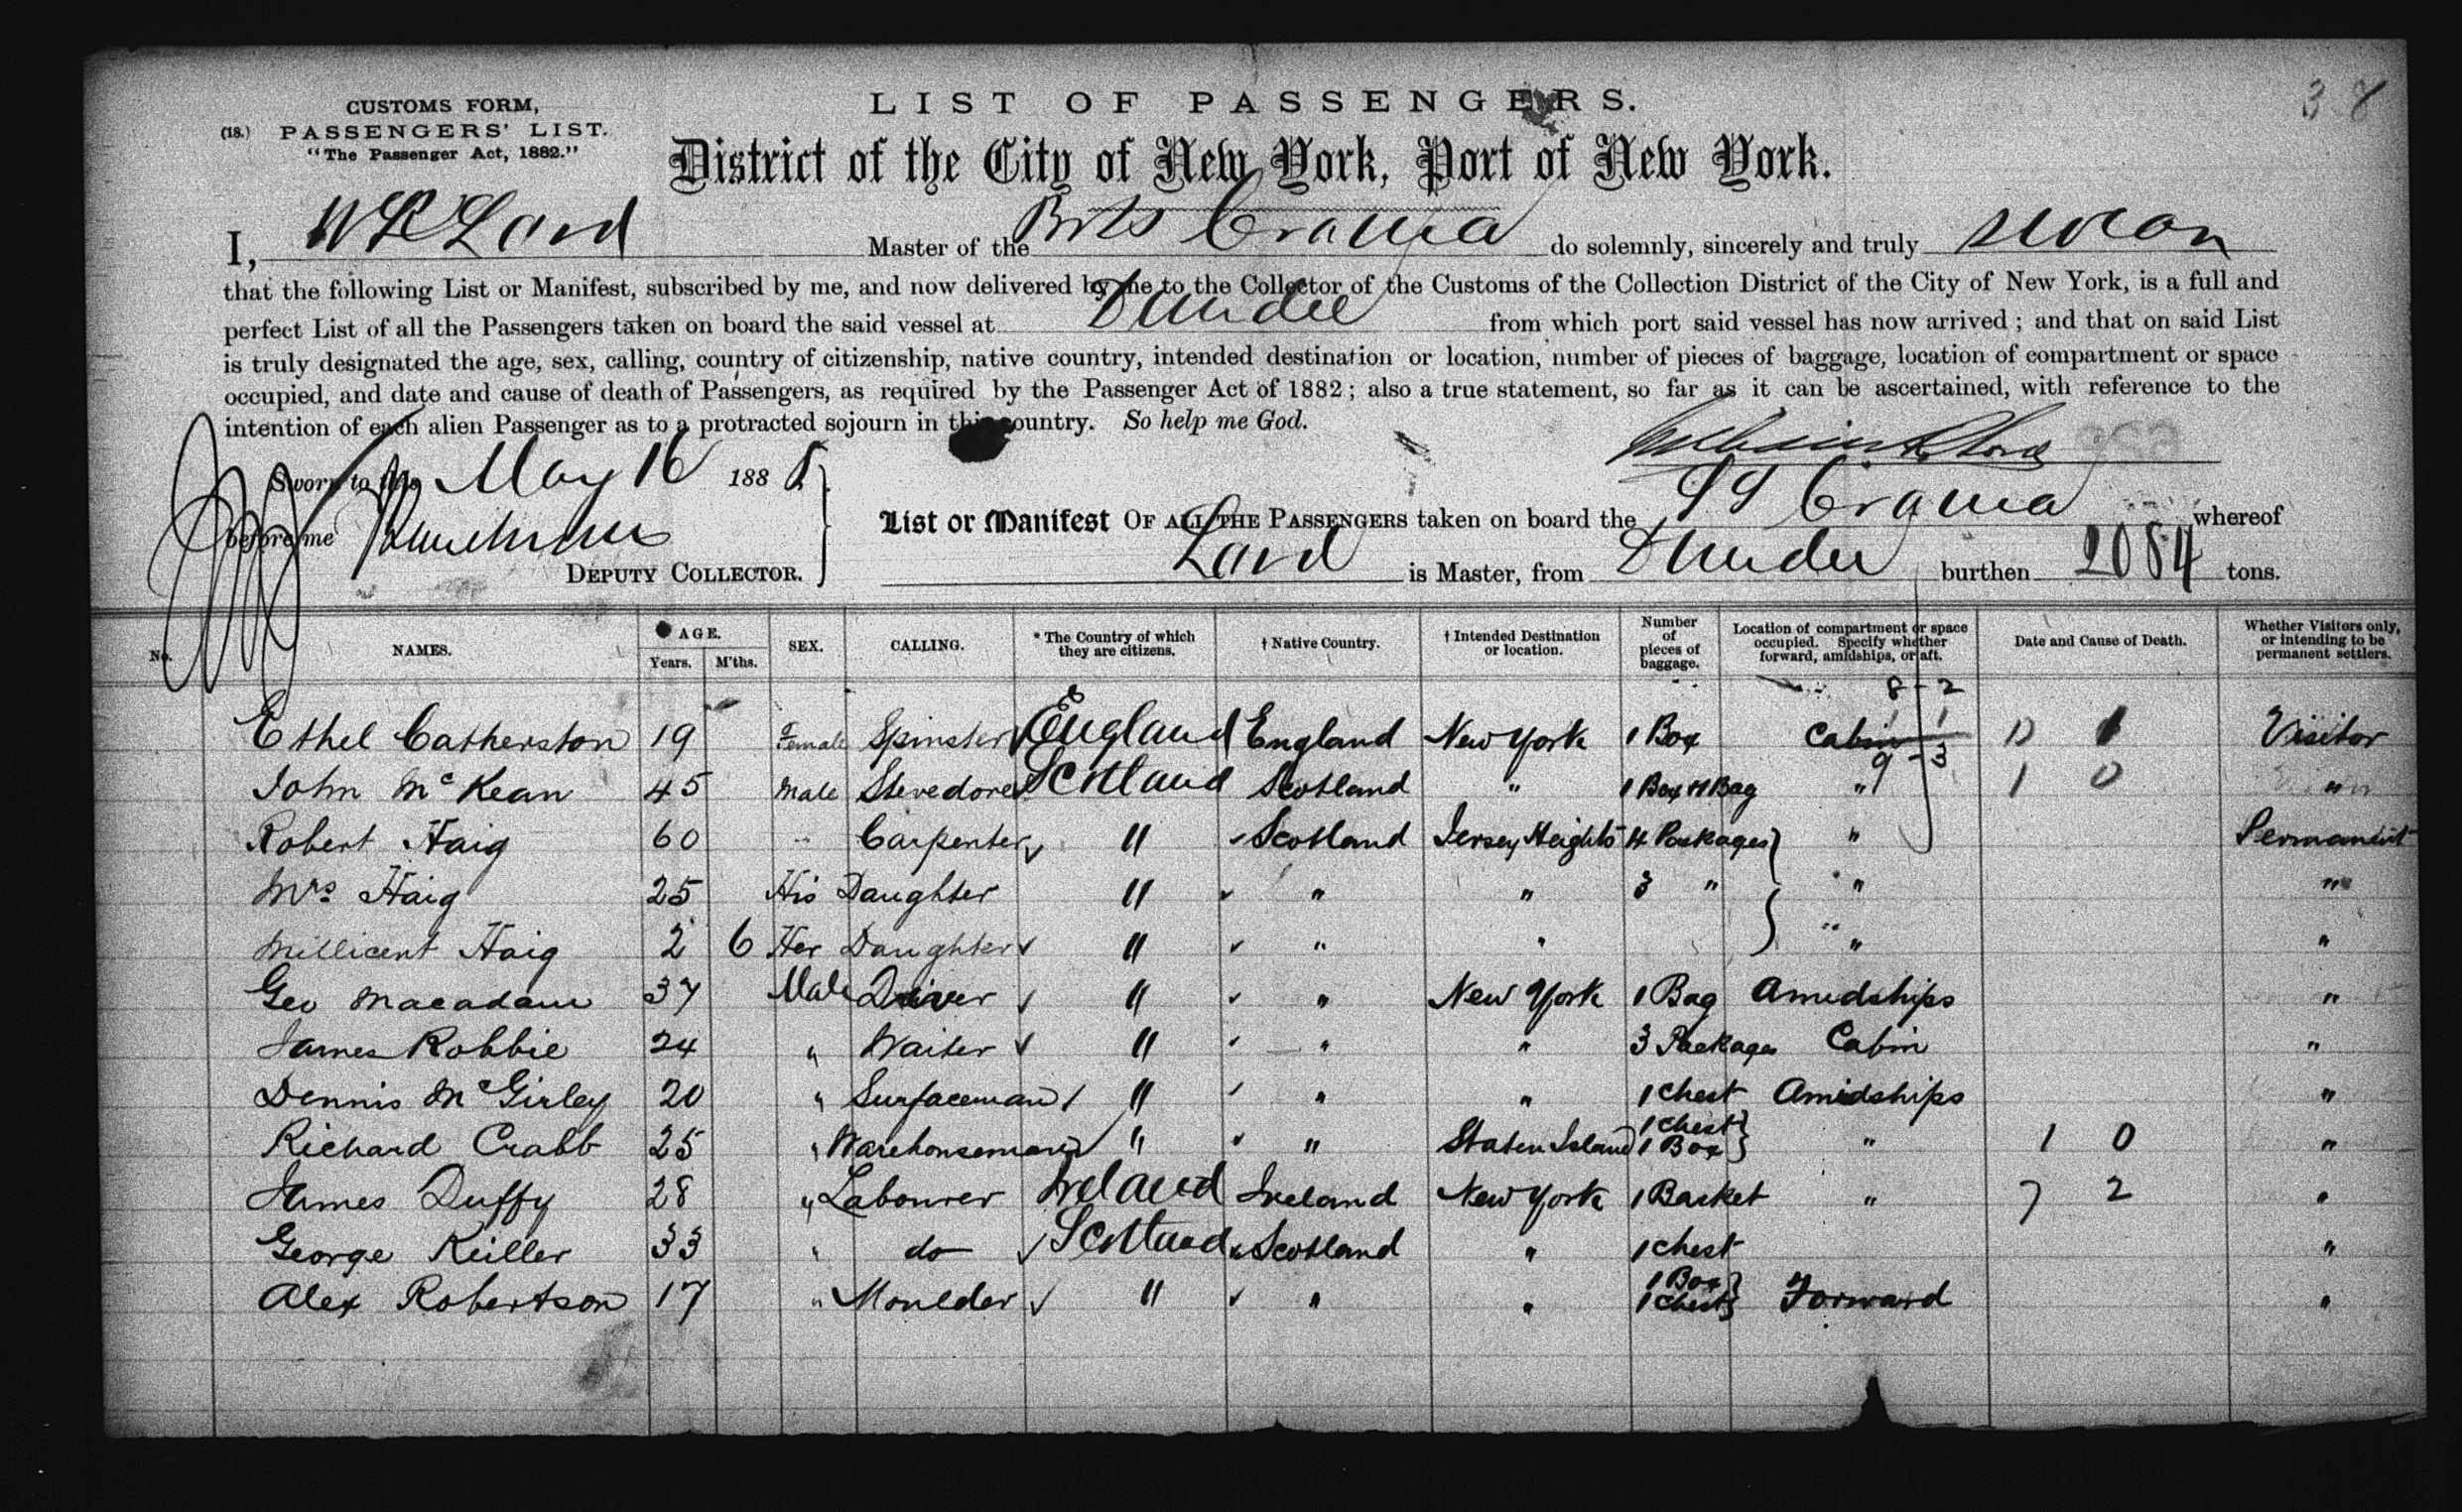 38
CUSTOMS FORM,
(18.) PASSENGERS' LIST.
"The Passenger Act, 1882."
LIST OF PASSENGERS.
District of the City of New York, Port of New York.
I, W R Lord Master of the Brits Craiva do solemnly, sincerely and truly swear
that the following List or Manifest, subscribed by me, and now delivered by me to the Collector of the Customs of the Collection District of the City of New York, is a full and
perfect List of all the Passengers taken on board the said vessel at Dundee from which port said vessel has now arrived; and that on said List
is truly designated the age, sex, calling, country of citizenship, native country, intended destination or location, number of pieces of baggage, location of compartment or space
occupied, and date and cause of death of Passengers, as required by the Passenger Act of 1882; also a true statement, so far as it can be ascertained, with reference to the
intention of each alien Passenger as to a protracted sojourn in this country. So help me God.
Sworn to this May 16 1888
before me
DEPUTY COLLECTOR.
List or Manifest OF ALL THE PASSENGERS taken on board the SS Craiva whereof
Lord is Master, from Dundee burthen 2084 tons.
No. NAMES. AGE. Years. M'ths. SEX. CALLING. * The Country of which they are citizens. † Native Country. † Intended Destination or location. Number of pieces of baggage. Location of compartment or space occupied. Specify whether forward, amidships, or aft. Date and Cause of Death. Whether Visitors only, or intending to be permanent settlers.
8 - 2
Ethel Catherston 19 Female Spinster England England New York 1 Box Cabin 1 1 Visitor
9 - 3
John McKean 45 Male Stevedore Scotland Scotland " 1 Box & 1 Bag " 1 0 "
Robert Haig 60 " Carpenter " Scotland Jersey Heights 4 Packages " Permanent
Mrs Haig 25 His Daughter " " " 3 " " "
Millicent Haig 2 6 Her Daughter " " " " "
Geo Macadam 37 Male Driver " " New York 1 Bag Amidships "
James Robbie 24 " Waiter " " " 3 Packages Cabin "
Dennis McGirley 20 " Surfaceman " " " 1 Chest Amidships "
Richard Crabb 25 " Warehouseman " " Staten Island 1 Chest 1 Box " 1 0 "
James Duffy 28 " Labourer Ireland Ireland New York 1 Basket " 7 2 "
George Keiller 33 " do Scotland Scotland " 1 Chest "
Alex Robertson 17 " Moulder " " " 1 Box 1 Chest Forward "